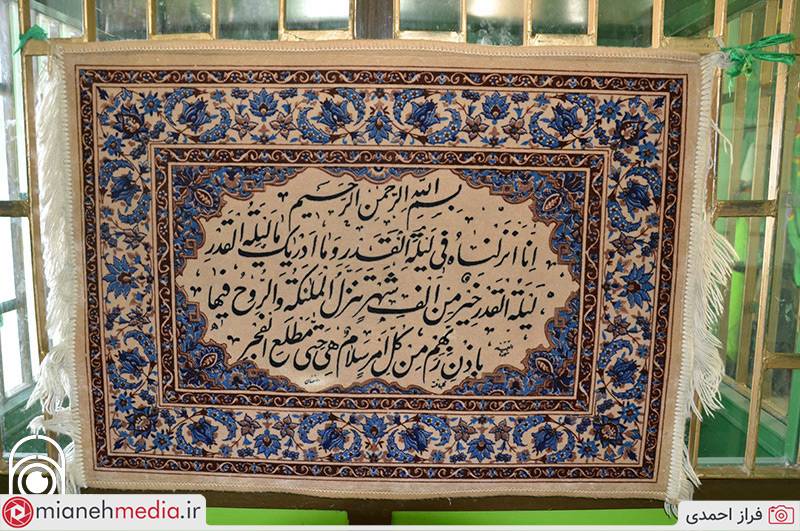 بسم الله الرحمن الرحیم
انا انزلناه فی لیلة القدر وما ادریک ما لیلة القدر
لیلة القدر خیر من الف شهر تنزل الملئکة والروح فیها
باذن ربهم من کل امر سلام هی حتی مطلع الفجر
mianehmedia.ir
فراز احمدی